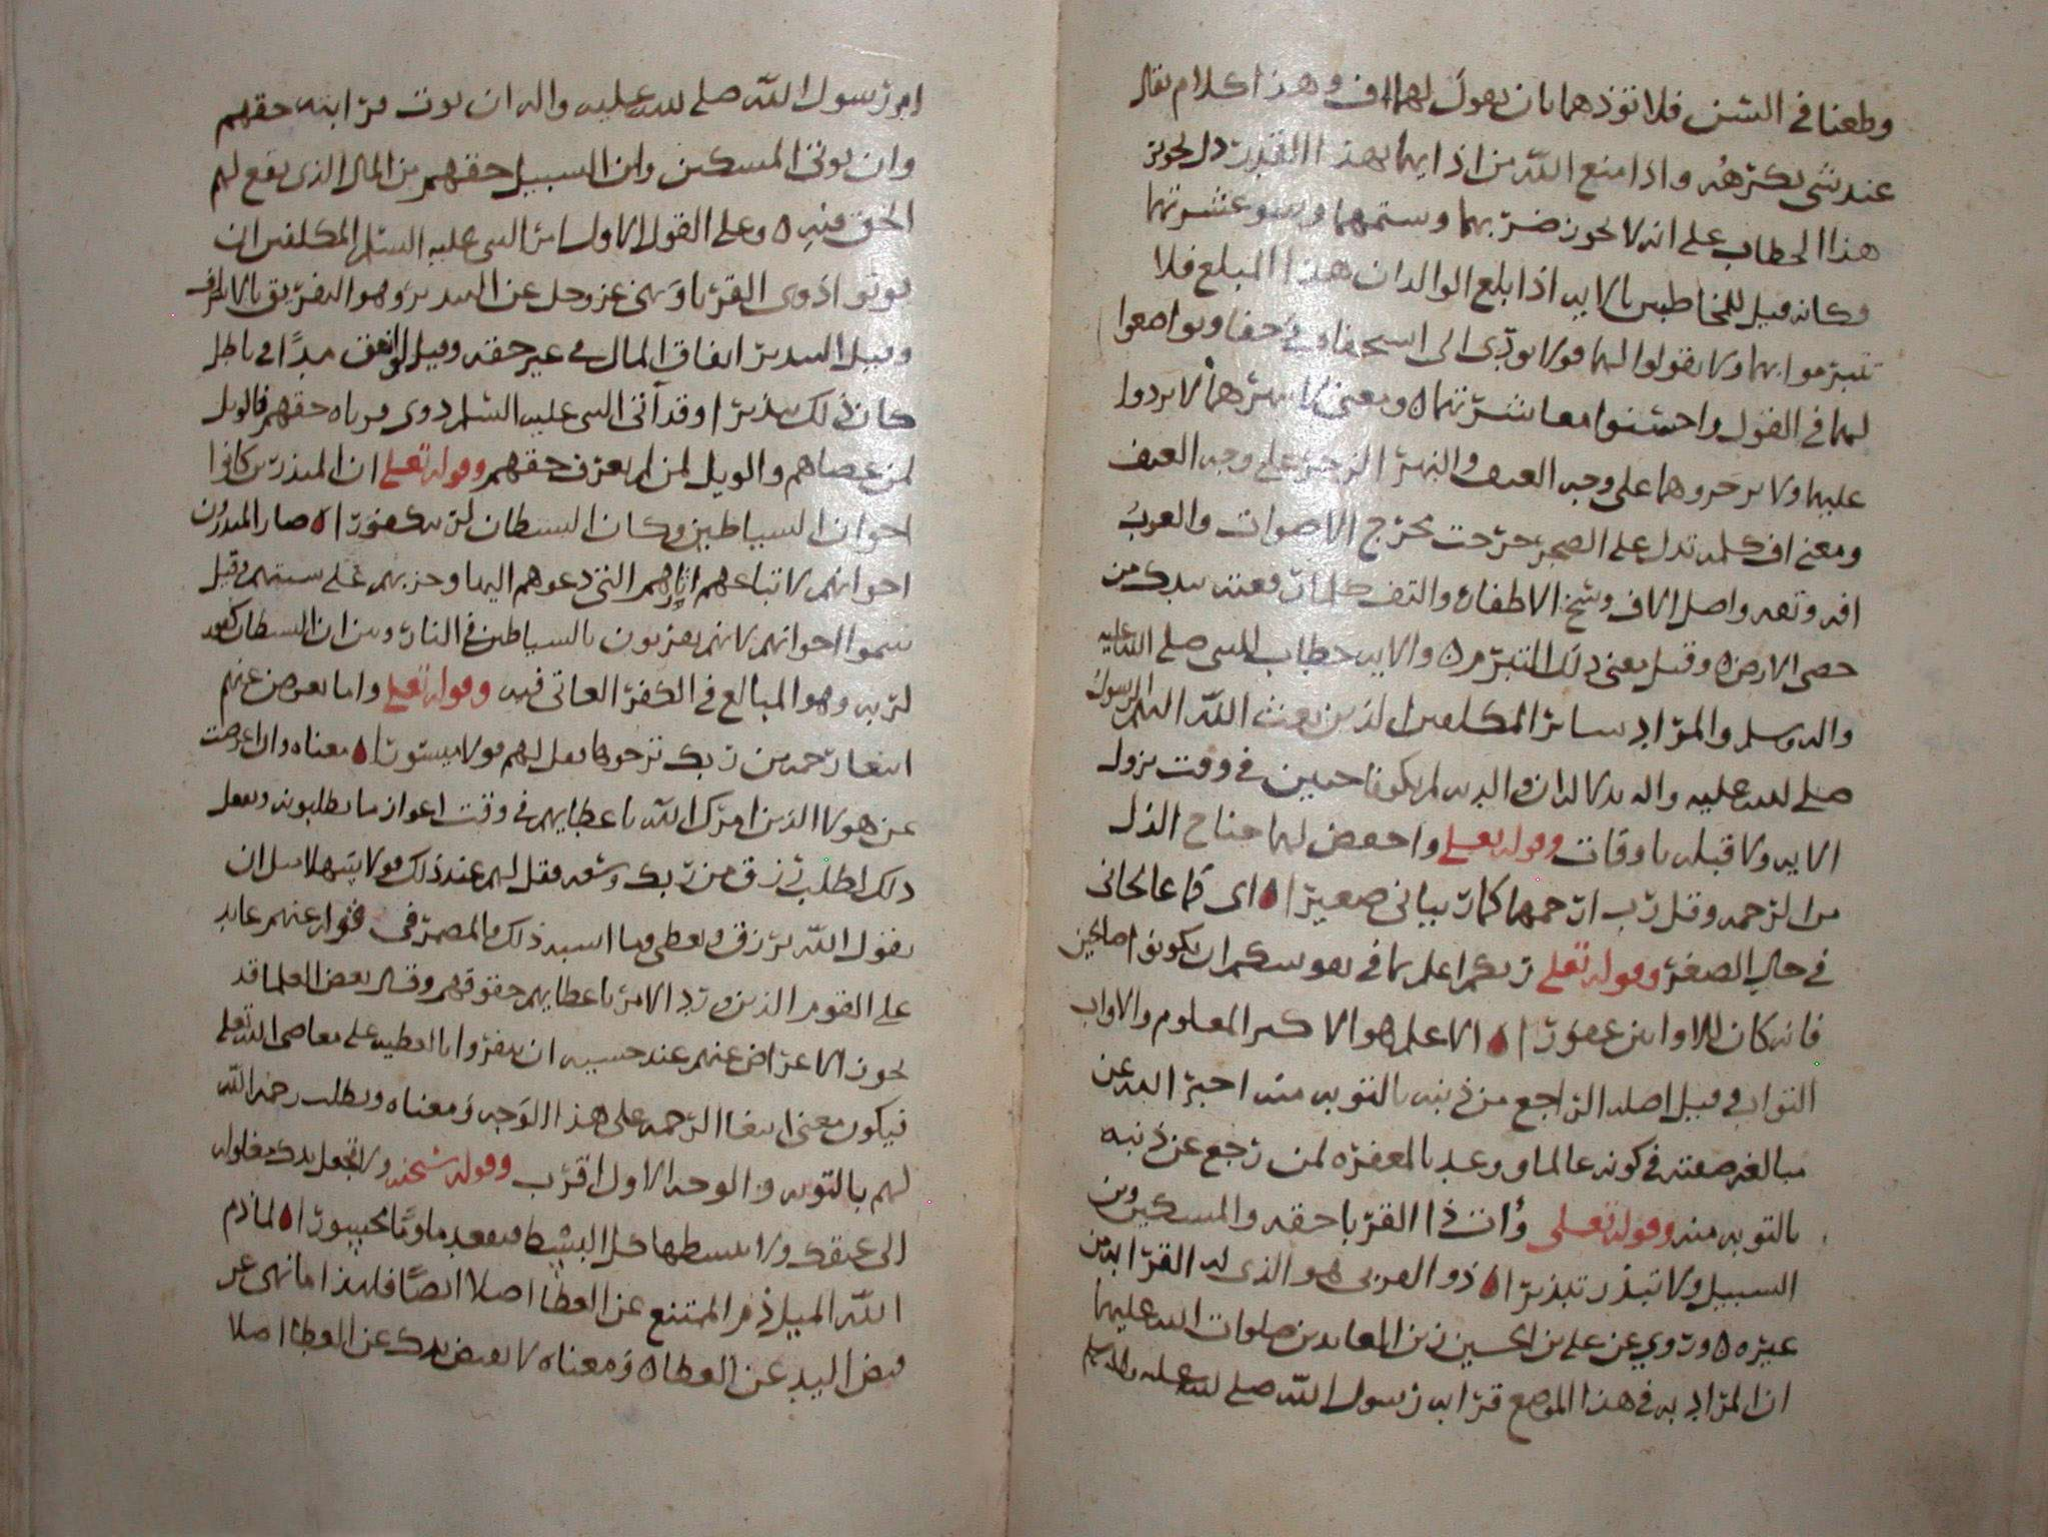 وطعنا في السن فلا تؤذهما بان يقول لهما اف وهذا كلام يقال
عند شي يكرهه واذا منع الله من اذا بهما بهذا القدر دل فحوى
هذا الخطاب على انه لا يجوز ضربهما وستمهما وسو عشرتهما
وكانه قيل للمخاطبين بالايه اذا بلغ الوالدان هذا المبلغ فلا
تتبرموا بهما ولا تقولوا لهما قولا يودي الى استخفاف وتواضعوا
لهما في القول واحسنوا معاشرتهما ٥ ومعنى لا تنهرهما لا تردوا
عليهما ولا تزجروهما على وجه العنف والنهر الزجر على وجه العنف
ومعنى اف كلمه تدل على الضجر خرجت مخرج الاصوات والعرب
افه وتفه واصل الاف وسخ الاظفار والتف كلما رفعته بيدك من
حصى الارض ٥ وقيل معنى ذلك التبرم ٥ والايه خطاب للنبي صلى الله عليه
واله وسلم والمراد سائر المكلفين الذين بعث الله اليهم الرسول
صلى الله عليه واله بدلاله ان والديه لم يكونا حيين في وقت نزول
الايه ولا قبله باوقات وقوله تعلى واخفض لهما جناح الذل
من الرحمه وقل رب ارحمهما كما ربياني صغيرا ٥ اي كما عالجاني
في حال الصغر وقوله تعلى ربكم اعلم بما في نفوسكم ان تكونوا صالحين
فانه كان للاوابين غفورا ٥ الاعلم هو الاكبر المعلوم والاواب
التواب وقيل اصله الراجع من ذنبه بالتوبه منه اخبر الله عن
مبالغه صفته في كونه عالما ووعد بالمغفره لمن رجع عن ذنبه
بالتوبه منه وقوله تعلى وات ذا القربا حقه والمسكين وبن
السبيل ولا تبذر تبذيرا ٥ ذو القربى هو الذي له القرابه من
غيره ٥ وروي عن علي بن الحسين زين العابدين صلوات الله عليهما
ان المراد به في هذا الموضع قرابه رسول الله صلى الله عليه واله وسلم
امر رسول الله صلى الله عليه واله ان يوت قرابته حقهم
وان يوتى المسكين وابن السبيل حقهم من المال الذي يقع لهم
الحق فيه ٥ وعلى القول الاول امر النبي عليه السلم المكلفين ان
يوتوا ذوي القربا ونهى عز وجل عن التبذير وهو التفريق بالاسراف
وقيل التبذير انفاق المال في غير حقه وقيل لو انفق مدا في باطل
كان ذلك تبذيرا وقد آتى النبي عليه السلم ذوي قرباه حقهم فالويل
لمن عصاهم والويل لمن لم يعرف حقهم وقوله تعلى ان المبذرين كانوا
اخوان الشياطين وكان الشيطان لربه كفورا ٥ صار المبذرون
اخوانهم لاتباعهم اثارهم التي دعوهم اليها وحزبهم على سنتهم وقيل
سموا اخوانهم لانهم يقرنون بالشياطين في النار وبين ان الشيطان كفور
لربه وهو المبالغ في الكفر العاتي فيه وقوله تعلى واما تعرضن عنهم
ابتغا رحمه من ربك ترجوها فقل لهم قولا ميسورا ٥ معناه وان اعرضت
عن هولا الذين امرك الله باعطايهم في وقت اعواز ما يطلبونه وتفعل
ذلك لطلب رزق من ربك وسعه فقل لهم عند ذلك قولا سهلا مثل ان
يقول الله يرزق ويعطي وما اشبه ذلك والمضمر في قوله عنهم عايد
على القوم الذين ورد الامر باعطايهم حقوقهم وقال بعض العلما قد
يجوز الاعراض عنهم عند خشيه ان ينفقوا بالعطيه على معاصي الله تعلى
فيكون معنى ابتغا الرحمه على هذا الوجه ومعناه وتطلب رحمة الله
لهم بالتوبه والوجه الاول اقرب وقوله سبحنه ولا تجعل يدك مغلوله
الى عنقك ولا تبسطها كل البسط فتقعد ملوما محسورا ٥ لما ذم
الله البخيل ذم الممتنع عن العطا اصلا ايضا فلهذا ما نهى عن
قبض اليد عن العطا ٥ ومعناه لا تقبض يدك عن العطا اصلا